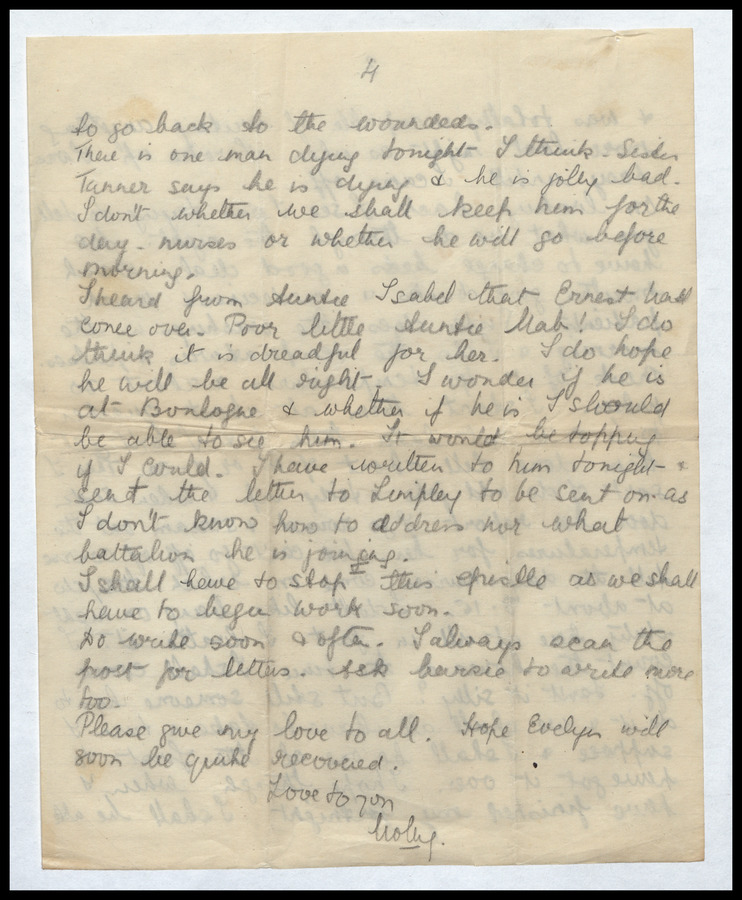 4
to go back to the woundeds.
There is one man dying tonight I think. Sister
Tanner says he is dying & he is jolly bad.
I don't whether we shall keep him for the
day-nurses or whether he will go before
morning.
I heard from Auntie Isabel that Ernest had
come over. Poor little Auntie Mab! I do
think it is dreadful for her. I do hope
he will be all right. I wonder if he is
at Boulogne & whether if he is I should
be able to see him. It would be topping
if I could. I have written to him tonight &
sent the letter to to be sent on as
I don't know how to address nor what
battalion he is joining.
I shall have to stop this epistle as we shall
have to begin work soon.
Do write soon & often. I always scan the
post for letters. Ask to write more
too.
Please give my love to all. Hope Evelyn will
soon be quite recovered.
Love to you
Molly.